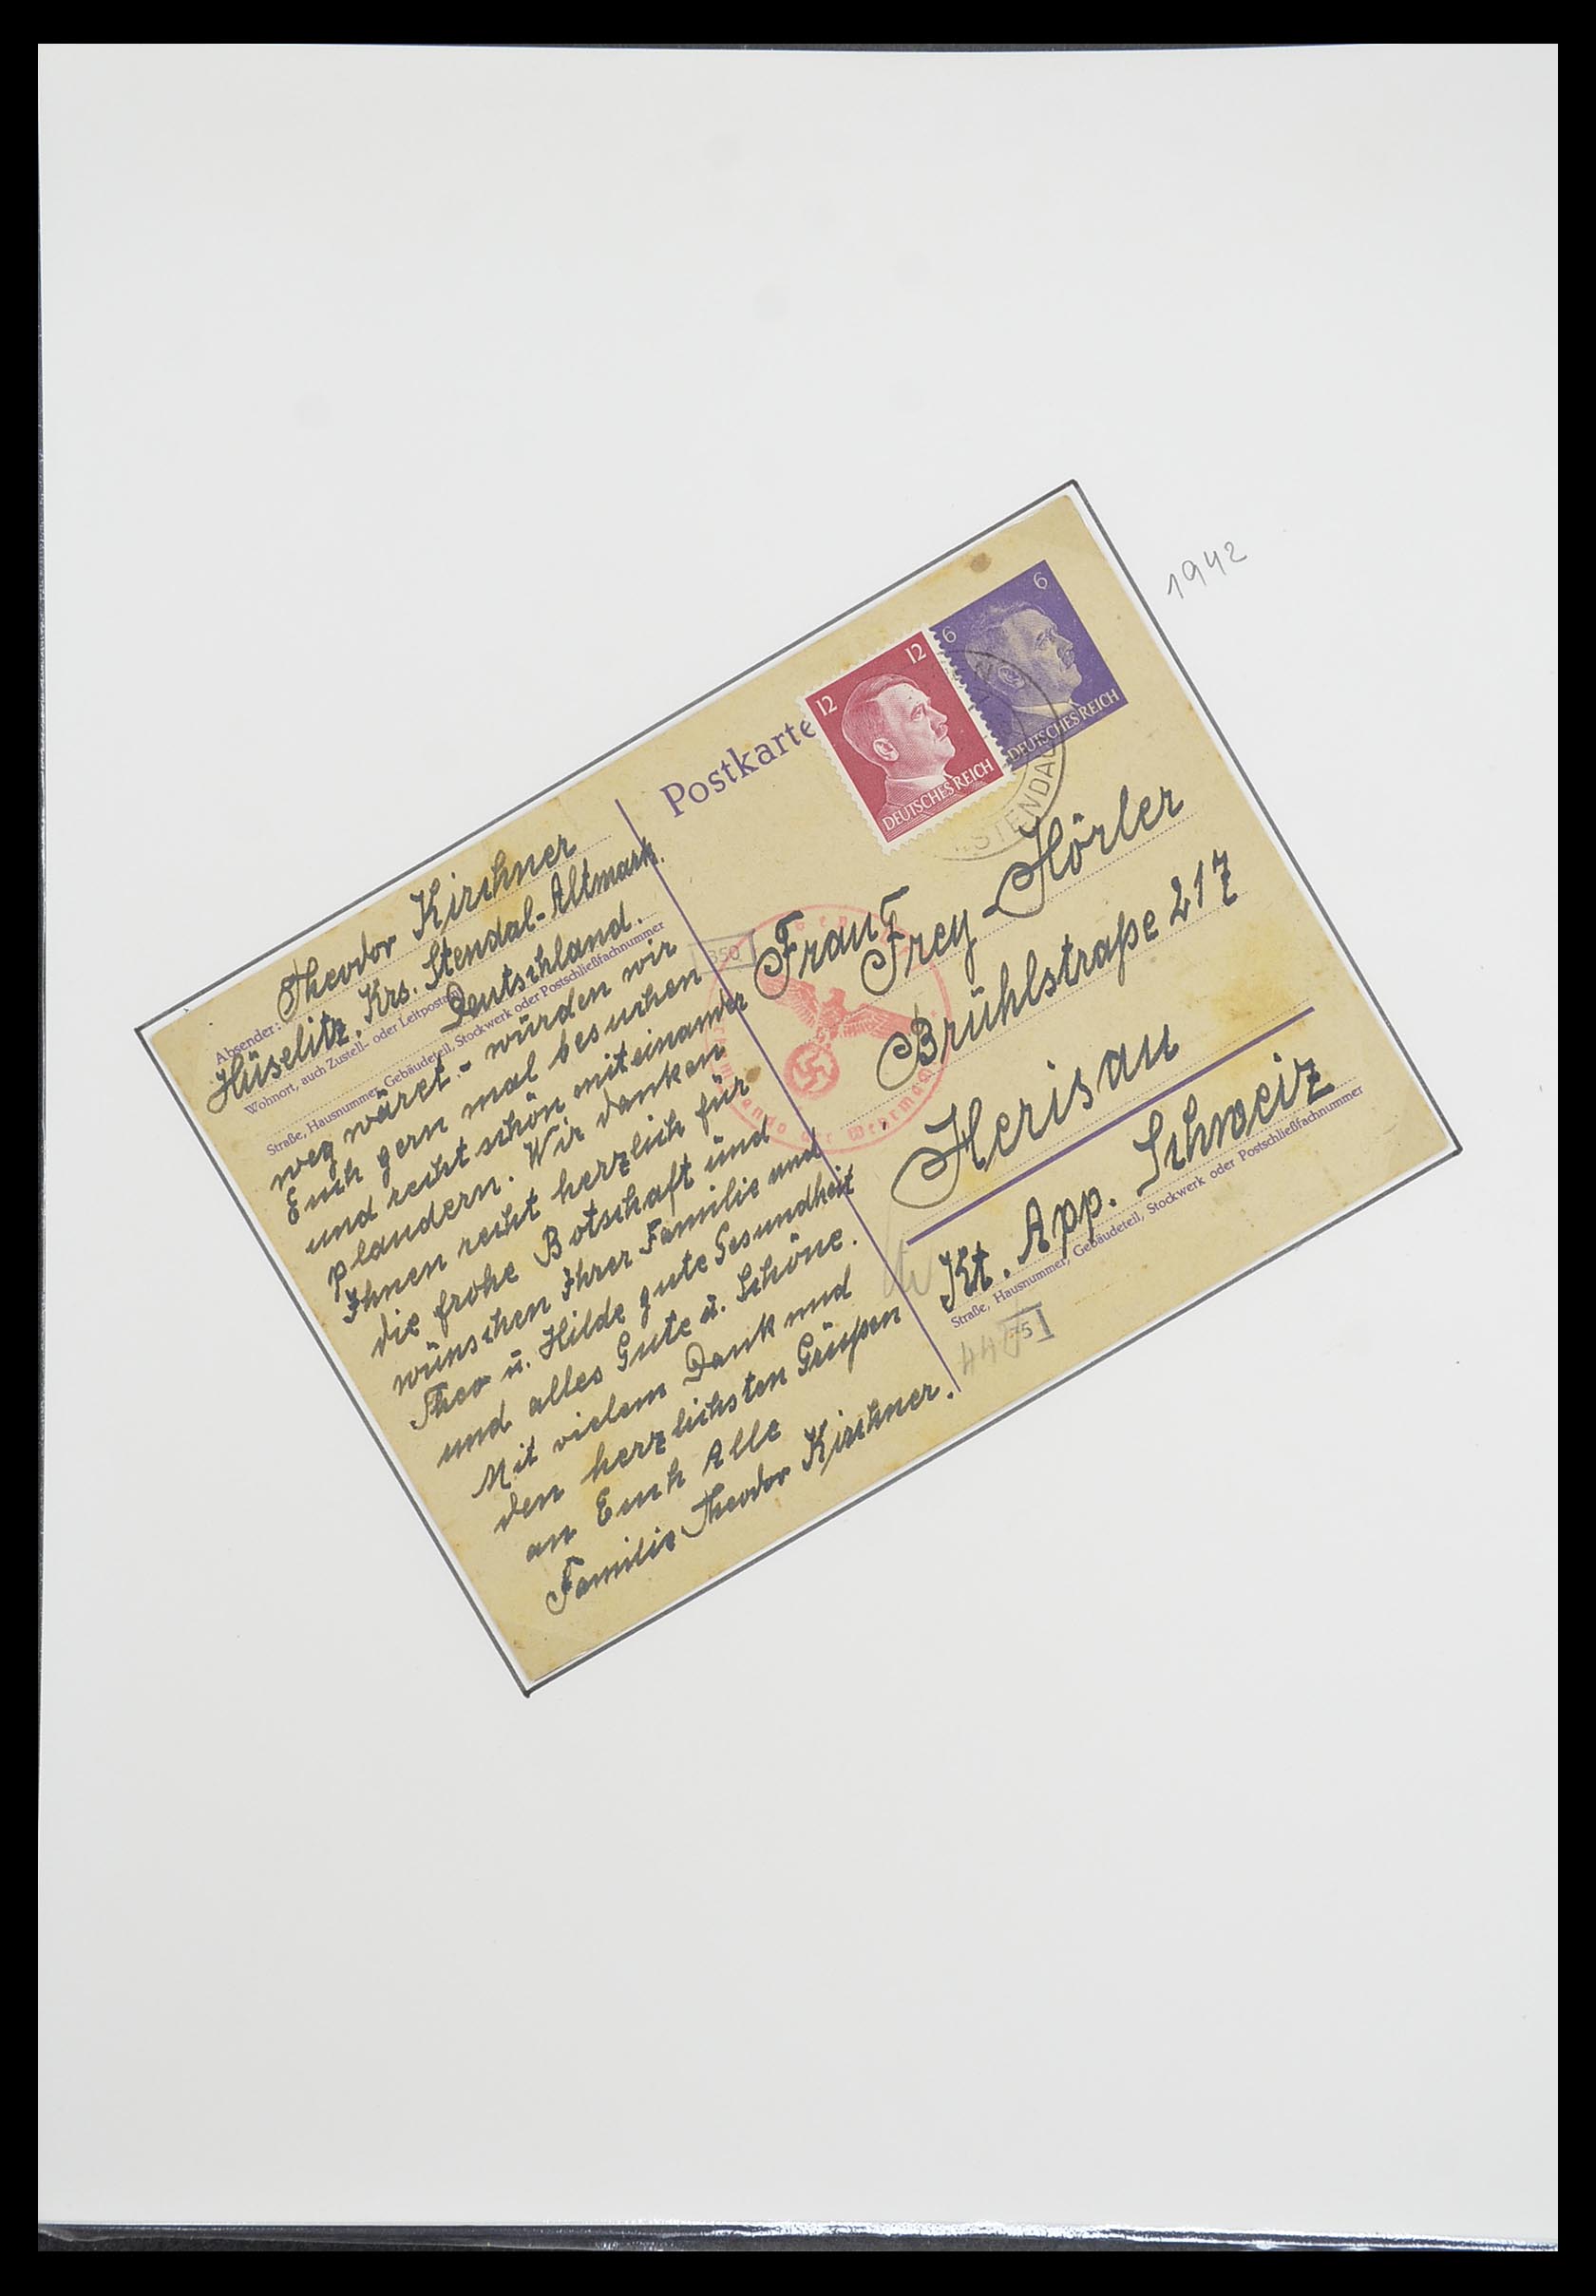 1942
Postkarte
12 12
DEUTSCHES REICH
6 6
DEUTSCHES REICH
STENDAL
Absender: Theodor Kirschner
Hüselitz, Krs. Stendal-Altmark.
Wohnort, auch Zustell- oder Leitpostamt
Deutschland.
Straße, Hausnummer, Gebäudeteil, Stockwerk oder Postschließfachnummer
weg wäret - würden wir
Euch gern mal besuchen
und recht schön miteinander
plaudern. Wir danken
Ihnen recht herzlich für
die frohe Botschaft und
wünschen Ihrer Familie und
Theo u. Hilde gute Gesundheit
und alles Gute u. Schöne.
Mit vielem Dank und
den herzlichsten Grüßen
an Euch Alle
Familie Theodor Kirschner.
350
der Wehrmacht
Frau F
Frey-Hörler
Brühlstraße 217
Herisau
Kt. App. Schweiz
Straße, Hausnummer, Gebäudeteil, Stockwerk oder Postschließfachnummer